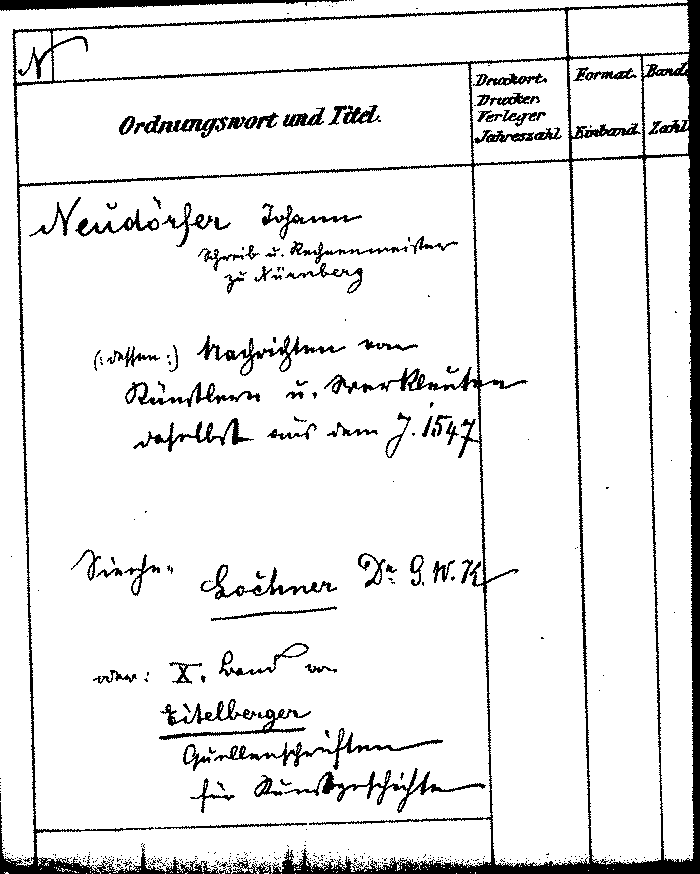 N
Ordnungswort und Titel.
Druckort.
Drucker.
Verleger
Jahreszahl
Format.
Einband.
Band
Zahl
Neudörfer Johann
Schreib u. Rechnenmeister
zu Nürnberg
(: dessen :) Nachrichten von
Künstlern u. Werkleuten
daselbst aus dem J. 1547
Siehe
Lochner Dr. G. W. K.
oder: X. Band von
Eitelberger
Quellenschriften
für Kunstgeschichte